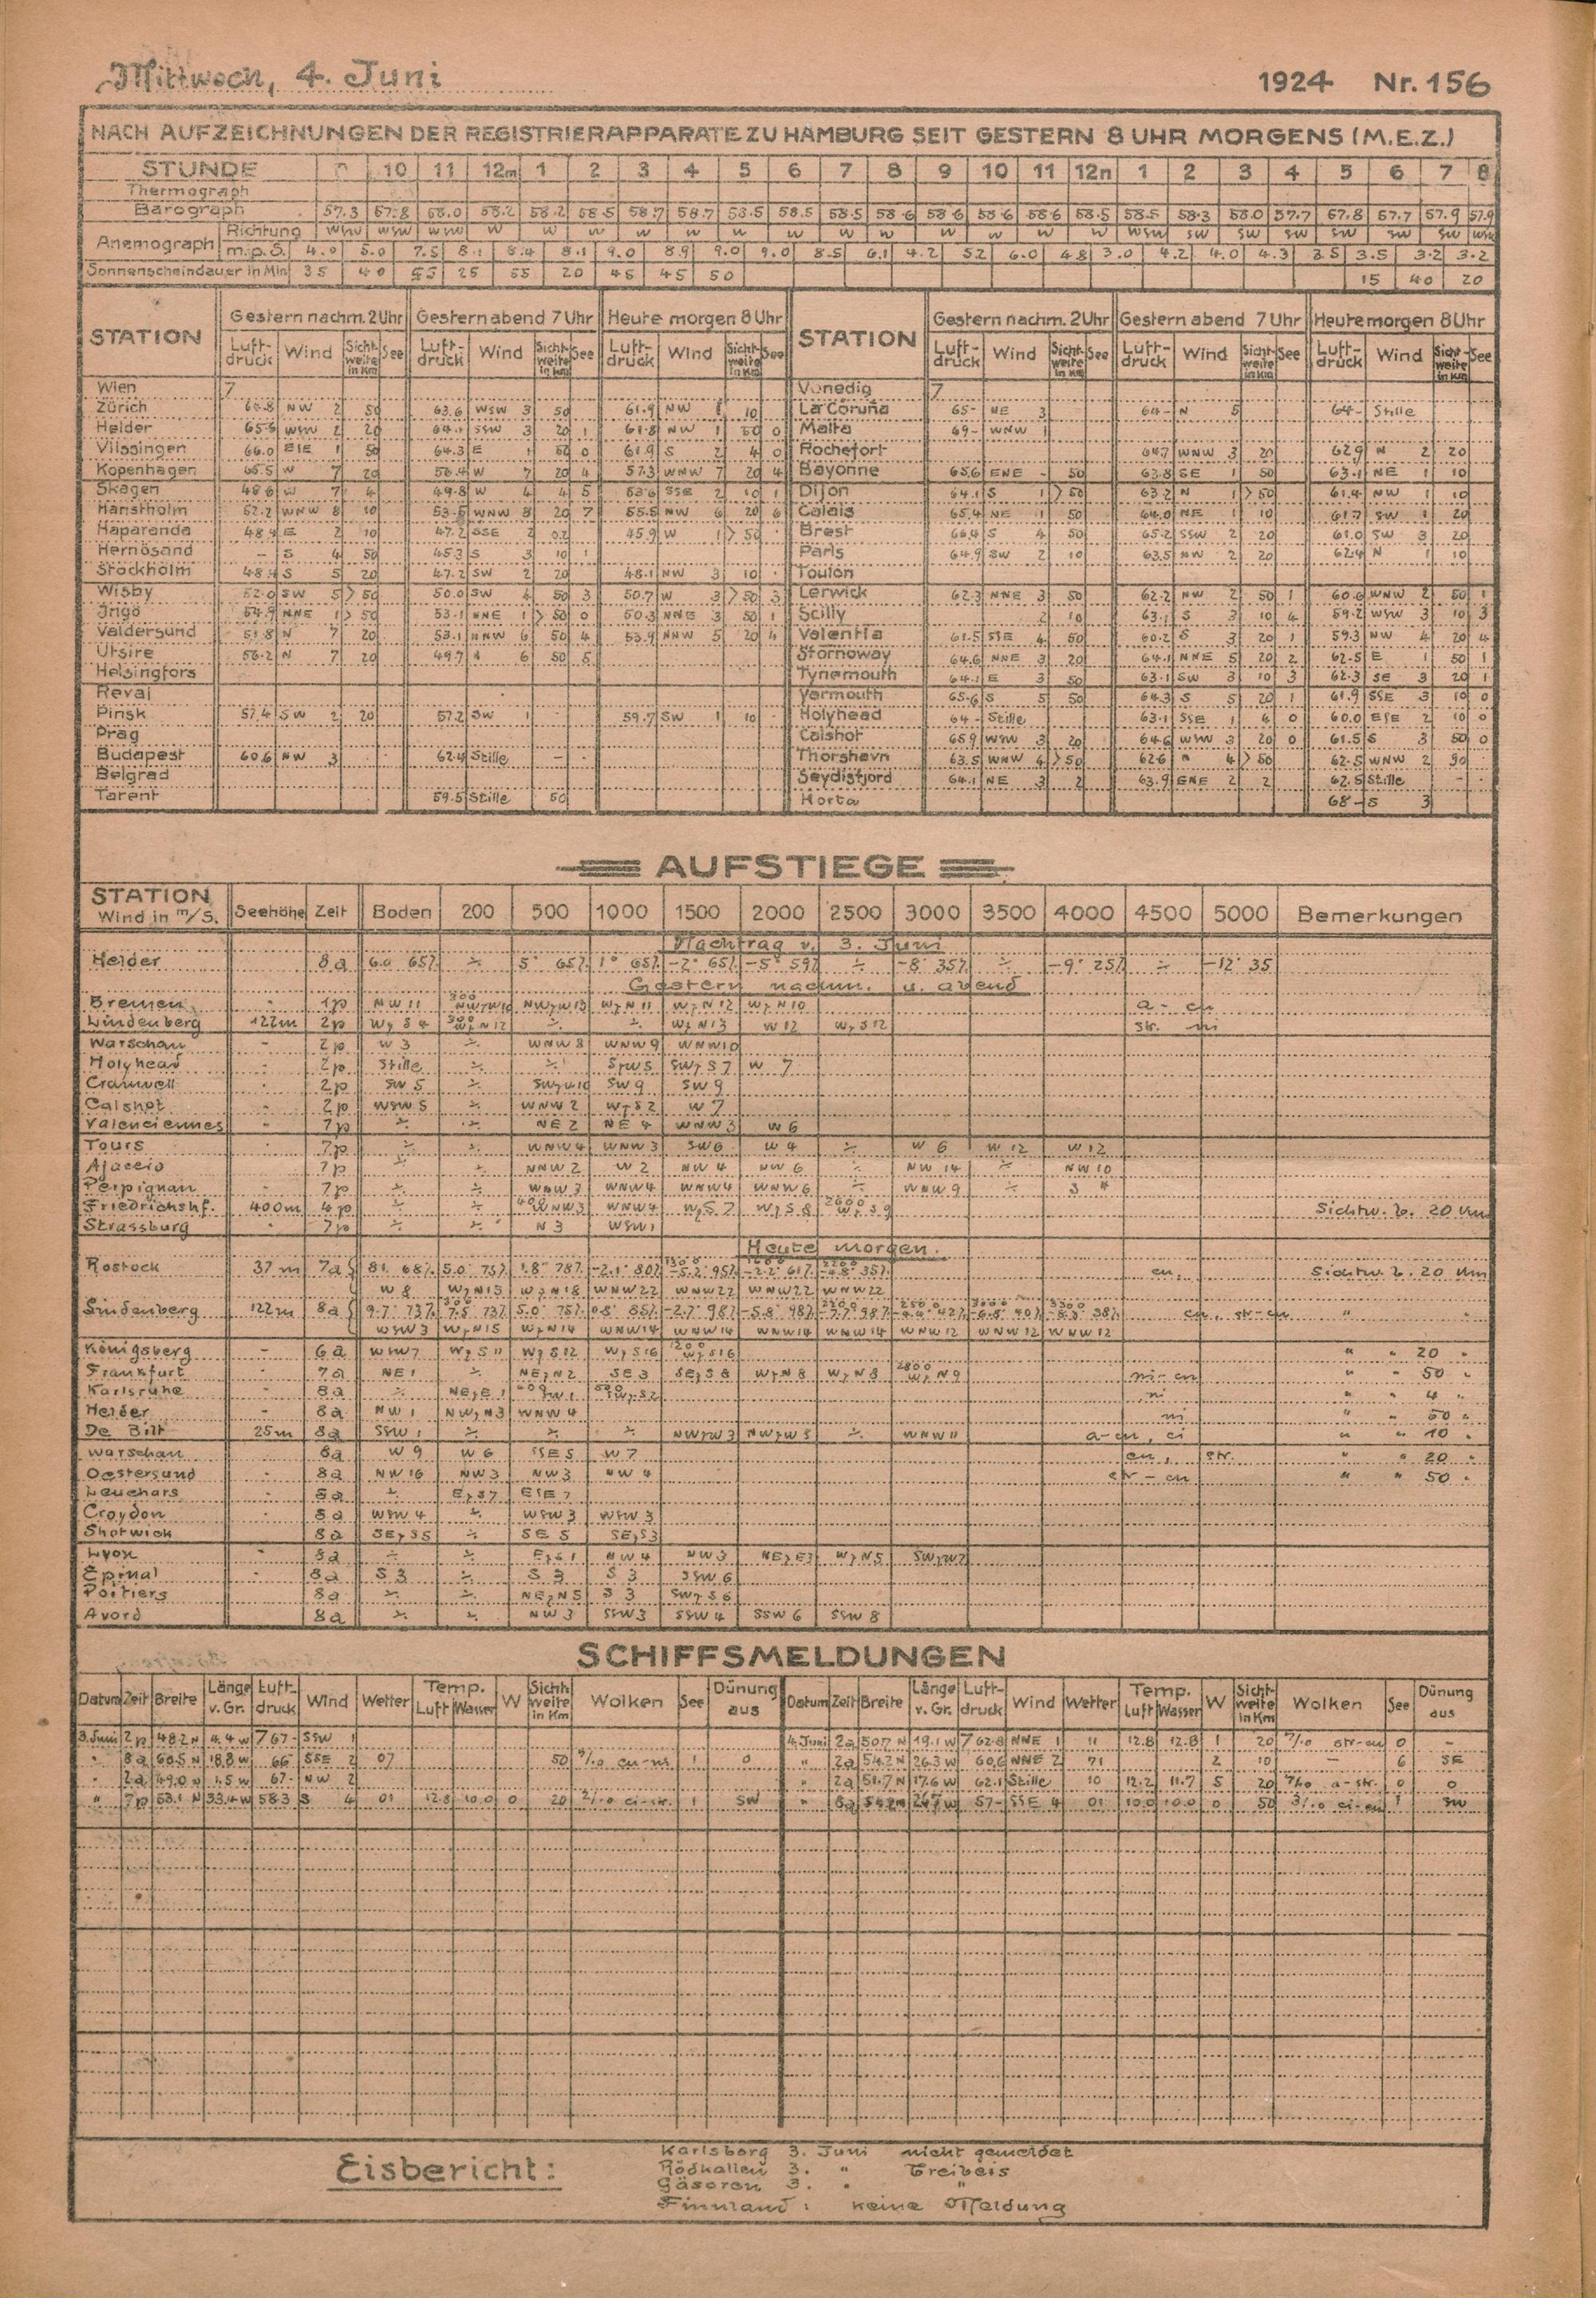 Mittwoch, 4. Juni 1924 Nr. 156
NACH AUFZEICHNUNGEN DER REGISTRIERAPPARATE ZU HAMBURG SEIT GESTERN 8 UHR MORGENS (M.E.Z.)
STUNDE 10 11 12m 1 2 3 4 5 6 7 8 9 10 11 12n 1 2 3 4 5 6 7 8
Thermograph
Barograph 57.3 57.8 58.0 58.2 58.2 58.5 58.7 58.7 58.5 58.5 58.5 58.6 58.6 58.6 58.6 58.5 58.5 58.3 58.0 57.7 57.8 57.7 57.9 57.9
Anemograph Richtung WNW WSW WNW W W W W W W W W W W W W W WSW SW SW SW SW SW SW WSW
m.p.S. 4.0 5.0 7.5 8.1 8.4 8.1 9.0 8.9 9.0 9.0 8.5 6.1 4.2 5.2 6.0 4.8 3.0 4.2 4.0 4.3 3.5 3.5 3.2 3.2
Sonnenscheindauer in Min 35 40 55 25 55 20 45 45 50 15 40 20
STATION Gestern nachm. 2 Uhr Gestern abend 7 Uhr Heute morgen 8 Uhr STATION Gestern nachm. 2 Uhr Gestern abend 7 Uhr Heute morgen 8 Uhr
Luft-druck Wind Sicht-weite in Km See Luft-druck Wind Sicht-weite in Km See Luft-druck Wind Sicht-weite in Km See Luft-druck Wind Sicht-weite in Km See Luft-druck Wind Sicht-weite in Km See Luft-druck Wind Sicht-weite in Km See
Wien 7 Venedig 7
Zürich NW 2 50 63.6 WSW 3 50 61.9 NW 1 10 La Coruña 65- NE 3 64- N 5 64- Stille
Helder 65.6 WSW 2 20 64.1 SSW 3 20 1 61.8 NW 1 50 0 Malta 69- WNW 1
Vlissingen 66.0 ESE 1 50 64.3 E 1 50 0 61.9 S 2 4 0 Rochefort 64.7 WNW 3 20 62.9 N 2 20
Kopenhagen 55.5 W 7 20 56.4 W 7 20 4 57.3 WNW 7 20 4 Bayonne 65.6 ENE - 50 63.8 SE 1 50 63.1 NE 1 10
Skagen 48.6 W 7 4 49.8 W 4 4 5 53.6 SSE 2 10 1 Dijon 64.1 S 1 >50 63.2 N 1 >50 61.4 NW 1 10
Hanstholm 52.2 WNW 8 10 53.5 WNW 8 20 7 55.5 NW 6 20 6 Calais 65.4 NE 1 50 64.0 NE 1 10 61.7 SW 1 20
Haparanda 48.4 E 2 10 47.2 SSE 2 0.2 45.9 W 1 >50 Brest 66.4 S 4 50 65.2 SSW 2 20 61.0 SW 3 20
Hernösand - S 4 50 45.3 S 3 10 1 Paris 64.9 SW 2 10 63.5 NW 2 20 62.4 N 1 10
Stockholm 48.4 S 5 20 47.2 SW 2 20 48.1 NW 3 10 Toulon
Wisby 52.0 SW 5 >50 50.0 SW 4 50 3 50.7 W 3 >50 3 Lerwick 62.3 NNE 3 50 62.2 NW 2 50 1 60.6 WNW 2 50 1
Ingö 54.9 NNE 1 >50 53.1 NNE 1 >50 0 50.3 NNE 3 50 1 Scilly 2 10 63.1 S 3 10 4 59.2 WSW 3 10 3
Valdersund 51.8 N 7 20 53.1 NNW 6 50 4 53.9 NNW 5 20 4 Valentia 61.5 SSE 4 50 60.2 S 3 20 1 59.3 NW 4 20 4
Utsire 56.2 N 7 20 49.7 N 6 50 5 Stornoway 64.6 NNE 3 20 64.1 NNE 5 20 2 62.5 E 1 50 1
Helsingfors Tynemouth 64.1 E 3 50 63.1 SW 3 10 3 62.3 SE 3 20 1
Reval Yarmouth 65.6 S 5 50 64.3 S 5 20 1 61.9 SSE 3 10 0
Pinsk 57.4 SW 2 20 57.2 SW 1 59.7 SW 1 10 Holyhead 64- Stille 63.1 SSE 1 6 0 60.0 ESE 2 10 0
Prag Calshot 65.9 WSW 3 20 64.6 WSW 3 20 0 61.5 S 3 50 0
Budapest 60.6 NW 3 62.4 Stille - Thorshavn 63.5 WNW 4 >50 62.6 N 4 >50 62.5 WNW 2 30
Belgrad Seydisfjord 64.1 NE 3 2 63.9 ENE 2 2 62.5 Stille -
Tarent 59.5 Stille 50 Horta 68- S 3
AUFSTIEGE
STATION Wind in m/S. Seehöhe Zeit Boden 200 500 1000 1500 2000 2500 3000 3500 4000 4500 5000 Bemerkungen
Nachtrag v. 3. Juni
Helder 8a 6.0 65% ÷ 5° 65% 1° 65% -2° 65% -5° 59% ÷ -8° 35% ÷ -9° 25% ÷ -12° 35
Gestern nachm. u. abend
Bremen - 1p NW 11 300 NWzW10 NWzW13 WzN11 WzN12 WzN10 a-cu
Lindenberg 122m 2p WzS4 300 WzN12 ÷ ÷ WzN13 W12 WzS12 str. ni
Warschau - 2p W3 ÷ WNW8 WNW9 WNW10
Holyhead - 2p Stille ÷ ÷ SzW5 SWzS7 W 7
Cranwell 2p SW 5 ÷ SWzW10 SW 9 SW 9
Calshot - 2p WSW 5 ÷ WNW 2 WzS2 W 7
Valenciennes - 7p ÷ ÷ NE 2 NE 4 WNW 3 W 6
Tours 7p ÷ ÷ WNW4 WNW 3 SW6 W 4 ÷ W 6 W 12 W 12
Ajaccio 7p ÷ ÷ NNW 2 W 2 NW 4 NW 6 ÷ NW 14 ÷ NW 10
Perpignan 7p ÷ ÷ WNW 3 WNW4 WNW4 WNW6 ÷ WNW 9 ÷
Friedrichshf. 400m 4p ÷ ÷ 400 WNW3 WNW4 WzS7 WzS8 2600 WzS9 Sichtw. b. 20 Km
Strassburg 7p ÷ ÷ N 3 WSW1
Heute morgen.
Rostock 37m 7a 8.1 68% 5.0° 75% 1.8° 78% -2.1° 80% 1300 -5.2° 95% 1600 -2.2° 61% 2200 -4.8° 35% cu, Sichtw. b. 20 Km
W 8 WzN15 WzN18 WNW22 WNW22 WNW22 WNW22
Lindenberg 122m 8a 9.7° 73% 300 7.5° 73% 5.0° 75% 0.8° 85% -2.7° 98% -5.8° 98% 2200 -7.7° 98% 2500 -4.4° 42% 3000 -6.8° 40% 3300 -8.3° 38% cu, str-cu "
WSW3 WzN15 WzN14 WNW14 WNW14 WNW14 WNW14 WNW 12 WNW 12 WNW 12
Königsberg - 6a WSW7 WzS11 WzS12 WzS16 1200 WzS16 " " 20 "
Frankfurt - 7a NE 1 NEzN2 SE 3 SEzS8 WzN8 WzN8 2800 WzN9 ni-cu " " 50 "
Karlsruhe - 8a ÷ NEzE1 ni " " 4 "
Helder - 8a NW 1 NWzN3 WNW 4 ni " " 50 "
De Bilt 25m 8a SSW 1 ÷ ÷ ÷ NWzW3 NWzW5 ÷ WNW11 a-cu, ci " " 10 "
Warschau 8a W 9 W 6 SSE 5 W 7 cu, str. " 20 "
Oestersund - 8a NW 16 NW 3 NW 3 NW 4 str-cu " " 50 "
Leuchars - 8a ÷ EzS7 ESE 7
Croydon - 8a WSW 4 ÷ WSW 3 WSW 3
Shotwick 8a SEzS5 ÷ SE 5 SEzS3
Lyon - 8a ÷ ÷ EzS1 NW 4 NW 3 NEzE3 WzN5 SWzW7
Epinal 8a S 3 ÷ S 3 S 3 SSW 6
Poitiers 8a ÷ ÷ NEzN5 S 3 SWzS6
Avord 8a ÷ ÷ NW 3 SSW3 SSW 4 SSW 6 SSW 8
SCHIFFSMELDUNGEN
Datum Zeit Breite Länge v. Gr. Luft-druck Wind Wetter Temp. Luft Wasser W Sicht-weite in Km Wolken See Dünung aus Datum Zeit Breite Länge v. Gr. Luft-druck Wind Wetter Temp. Luft Wasser W Sicht-weite in Km Wolken See Dünung aus
3. Juni 2p 48.2 N 4.4 W 767- SSW 1 4. Juni 2a 50.7 N 19.1 W 762.8 NNE 1 11 12.8 12.8 1 20 str-cu 0 -
" 8a 60.5 N 18.8 W 66- SSE 2 07 50 cu-ni 1 0 " 2a 54.2 N 26.3 W 60.6 NNE 2 71 2 10 - 6 SE
" 2a 49.0 N 1.5 W 67- NW 2 " 2a 51.7 N 17.6 W 62.1 Stille 10 12.2 11.7 5 20 a-str. 0 0
" 7p 53.1 N 33.4 W 58.3 S 4 01 12.8 10.0 0 20 2/10 ci-str. 1 SW " 8a W 57- SSE 4 01 10.0 10.0 0 50 3/10 ci-cu 1 SW
Eisbericht:
Karlsborg 3. Juni nicht gemeldet
Rödkallen 3. " Treibeis
Gåsören 3. " "
Finnland: keine Meldung